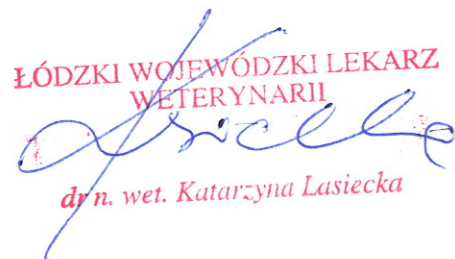 ŁÓDZKI WOJEWÓDZKI LEKARZ
WETERYNARII
dr n. wet. Katarzyna Lasiecka